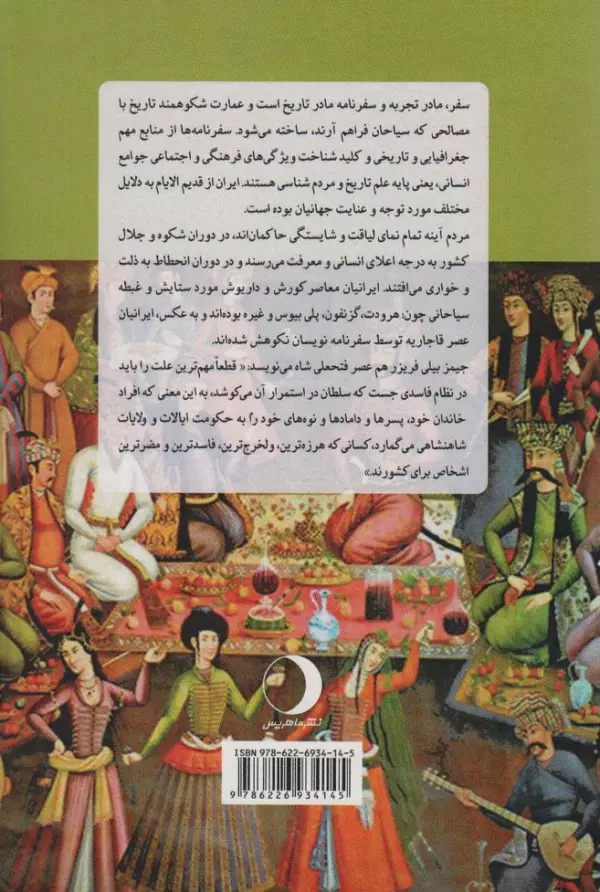 سفر، مادر تجربه و سفرنامه مادر تاریخ است و عمارت شکوهمند تاریخ با
مصالحی که سیاحان فراهم آرند، ساخته می‌شود. سفرنامه‌ها از منابع مهم
جغرافیایی و تاریخی و کلید شناخت ویژگی‌های فرهنگی و اجتماعی جوامع
انسانی، یعنی پایه علم تاریخ و مردم شناسی هستند. ایران از قدیم الایام به دلایل
مختلف مورد توجه و عنایت جهانیان بوده است.
مردم آینه تمام نمای لیاقت و شایستگی حاکمان‌اند، در دوران شکوه و جلال
کشور به درجه اعلای انسانی و معرفت می‌رسند و در دوران انحطاط به ذلت
و خواری می‌افتند. ایرانیان معاصر کورش و داریوش مورد ستایش و غبطه
سیاحانی چون: هرودت، گزنفون، پلی بیوس و غیره بوده‌اند و به عکس، ایرانیان
عصر قاجاریه توسط سفرنامه نویسان نکوهش شده‌اند.
جیمز بیلی فریزر هم عصر فتحعلی شاه می‌نویسد: « قطعاً مهم‌ترین علت را باید
در نظام فاسدی جست که سلطان در استمرار آن می‌کوشد، به این معنی که افراد
خاندان خود، پسرها و دامادها و نوه‌های خود را به حکومت ایالات و ولایات
شاهنشاهی می‌گمارد، کسانی که هرزه‌ترین، ولخرج‌ترین، فاسدترین و مضرترین
اشخاص برای کشورند.»
نشر ماهریس
ISBN 978-622-6934-14-5
9 786226 934145